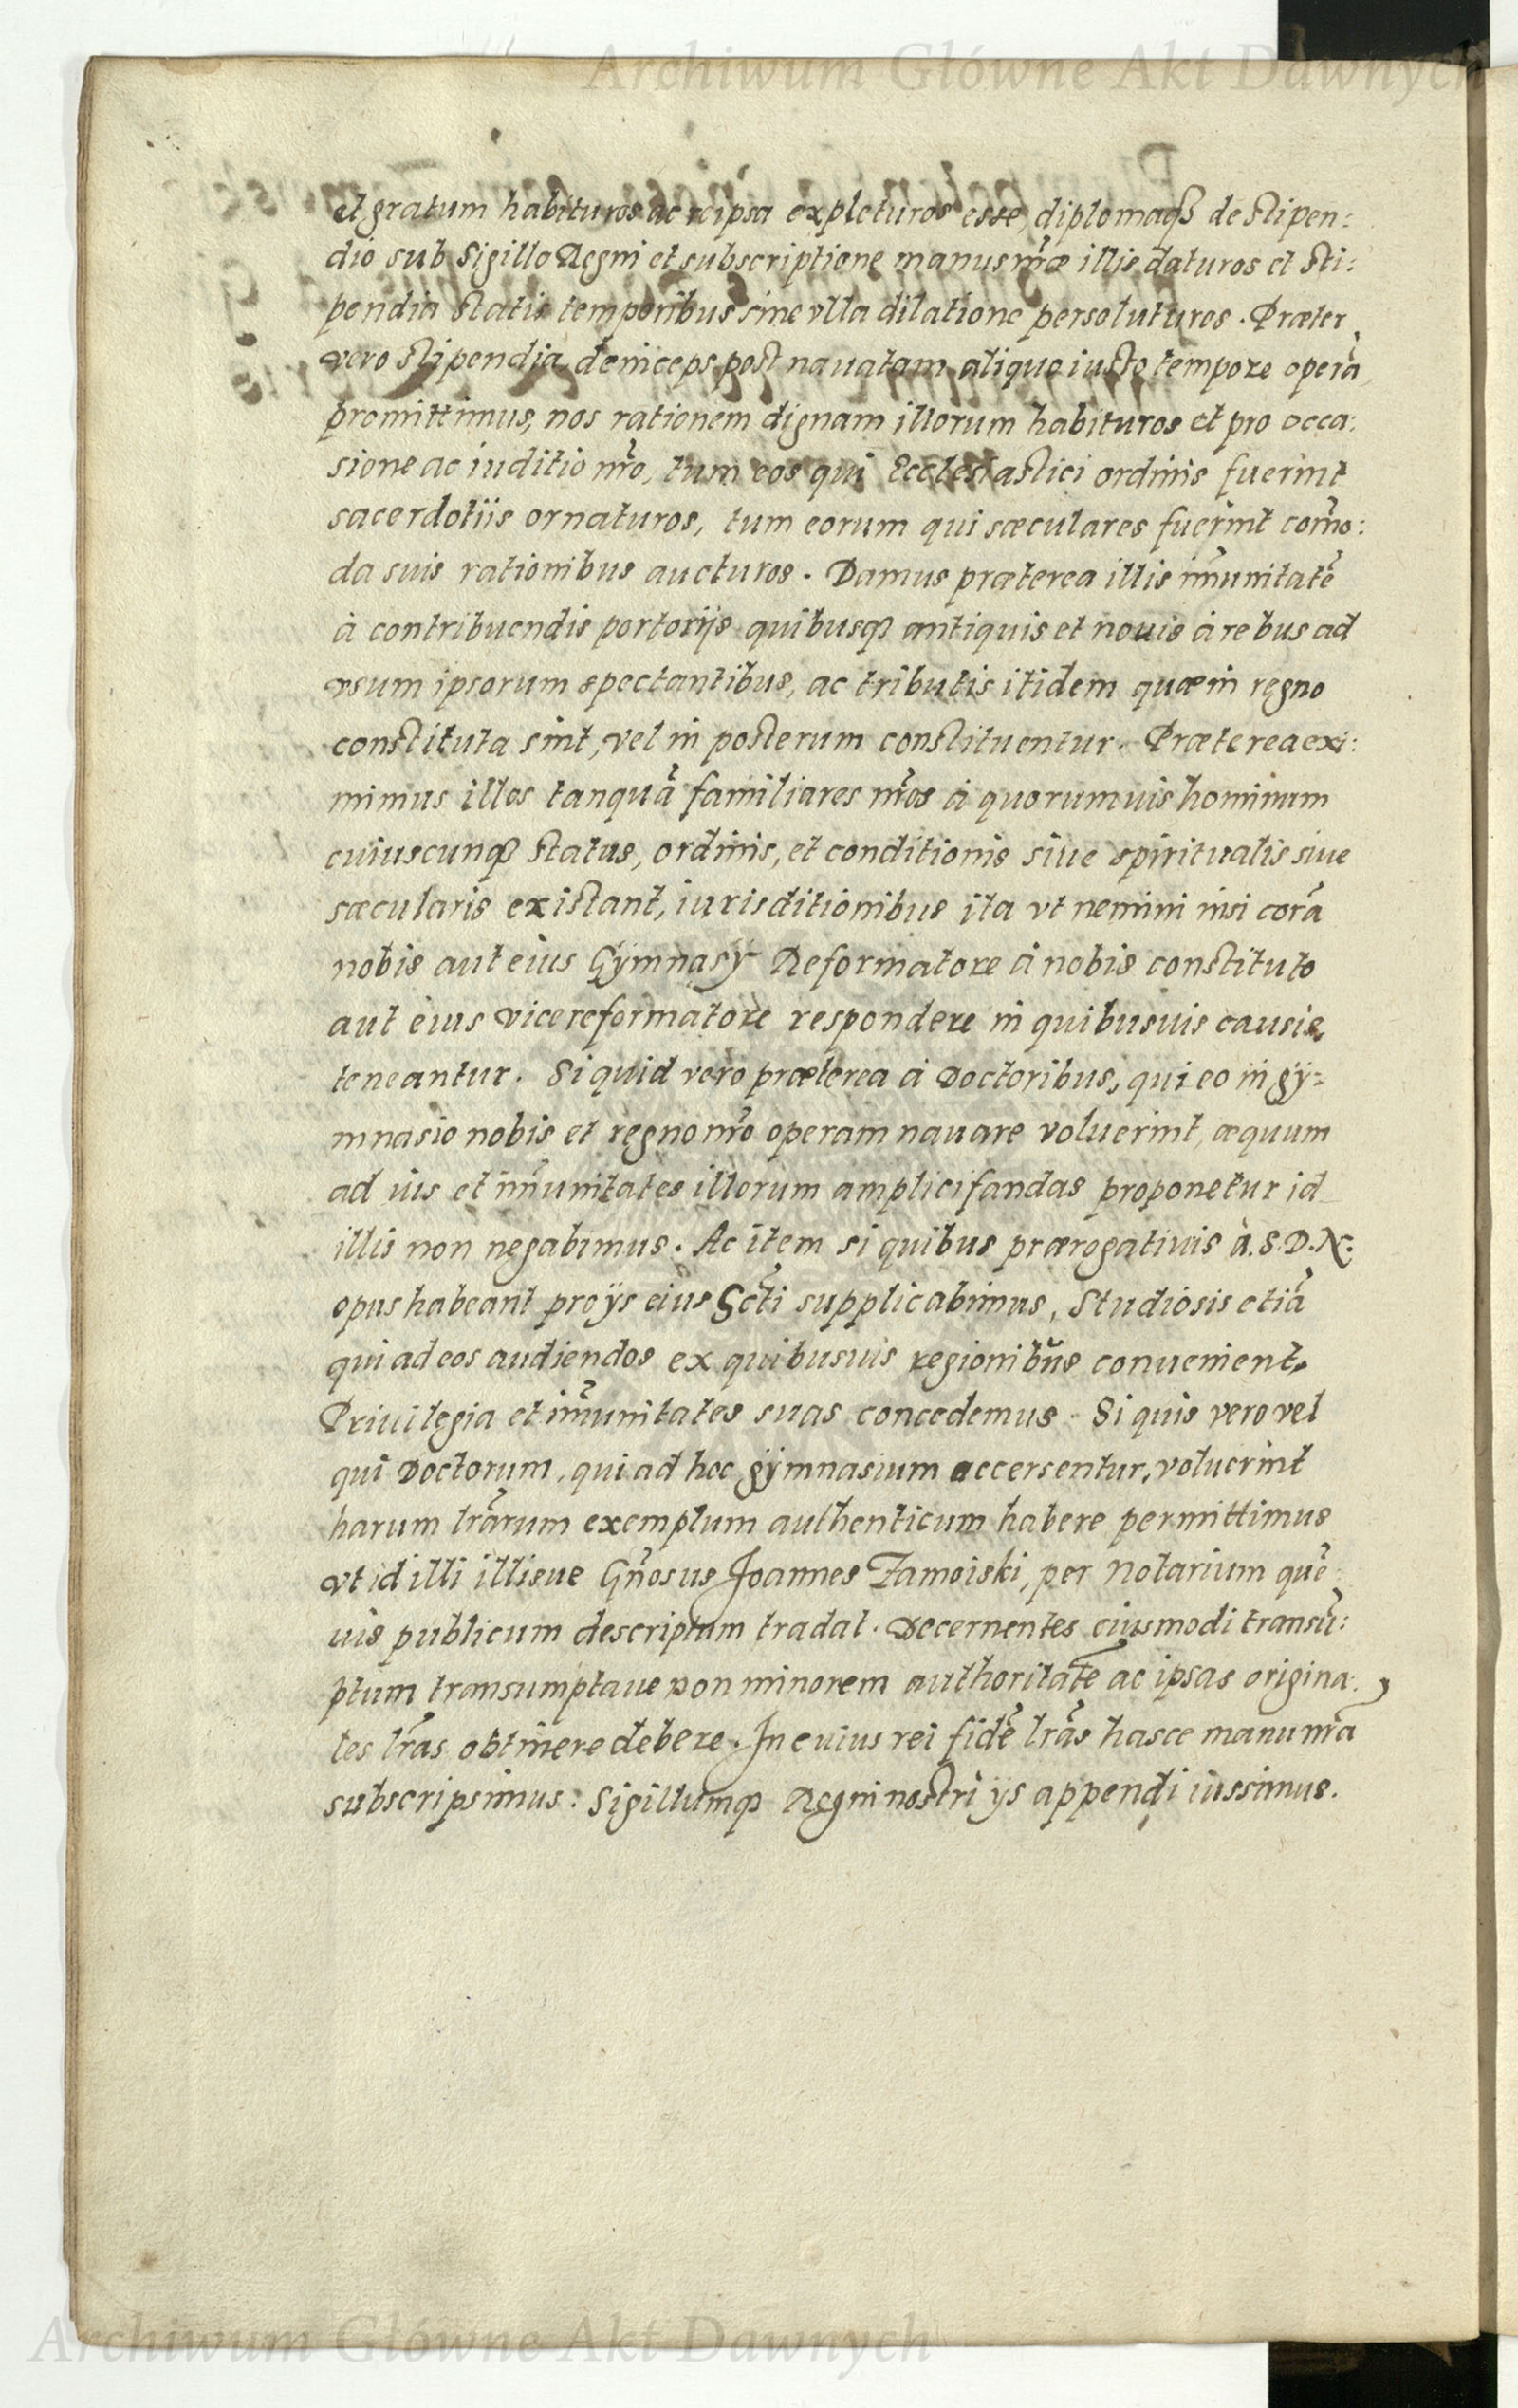 Archiwum Główne Akt Dawnych
et gratum habituros ac reipsa expleturos esse, diplomaq de stipen:
dio sub Sigillo Regni et subscriptione manus nr̃æ illis daturos et sti:
pendia statis temporibus sine vlla dilatione persoluturos. Præter
vero stipendia, deinceps post nauatam aliquo iusto tempore operã,
promittimus, nos rationem dignam illorum habituros et pro occa:
sione ac iuditio nr̃o, tum eos qui Ecclesiastici ordinis fuerint
sacerdotiis ornaturos, tum eorum qui sæculares fuerint com̃o:
da suis rationibus aucturos. Damus præterea illis im̃unitatẽ
à contribuendis portorijs quibusq antiquis et nouis à rebus ad
vsum ipsorum spectantibus, ac tributis itidem quæ in regno
constituta sint, vel in posterum constituentur. Præterea exi:
mimus illos tanquã familiares nr̃os à quorumuis hominum
cuiuscunq status, ordinis, et conditionis siue spiritualis siue
sæcularis existant, iurisditionibus ita vt nemini nisi corã
nobis aut eius Gymnasÿ Reformatore à nobis constituto
aut eius vicereformatore respondere in quibusuis causis,
teneantur. Si quid vero præterea à Doctoribus, qui eo in gÿ=
mnasio nobis et regno nr̃o operam nauare voluerint, æquum
ad ius et im̃unitates illorum amplicifandas proponetur id
illis non negabimus. Ac item si quibus prærogatiuis à. S. D. N:
opus habeant pro ÿs eius Sc̃ti supplicabimus, Studiosis etiã
qui ad eos audiendos ex quibusuis regionibus conuenient,
Priuilegia et im̃unitates suas concedemus. Si quis vero vel
qui Doctorum, qui ad hoc gÿmnasium accersentur, voluerint
harum lr̃arum exemplum authenticum habere permittimus
vt id illi illisue Gñosus Joannes Zamoiski, per Notarium quẽ
uis publicum descriptum tradat. Decernentes eiusmodi transũ:
ptum transumptaue non minorem authoritatẽ ac ipsas origina:
les lr̃as obtinere debere. In cuius rei fidẽ lr̃as hasce manu nr̃a
subscripsimus: Sigillumq Regni nostri ÿs appendi iussimus.
Archiwum Główne Akt Dawnych